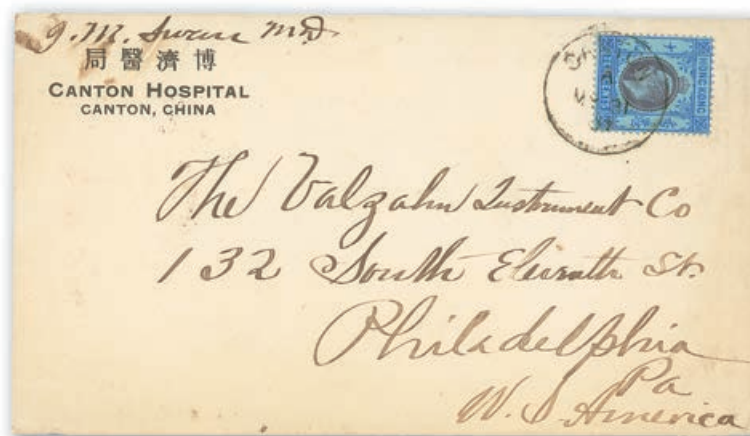 J. M. Swan MD
博濟醫局
CANTON HOSPITAL
CANTON, CHINA
HONG KONG
CENTS
The Valzahn Instrument Co
132 South Eleventh St.
Philadelphia
Pa
U. S. America